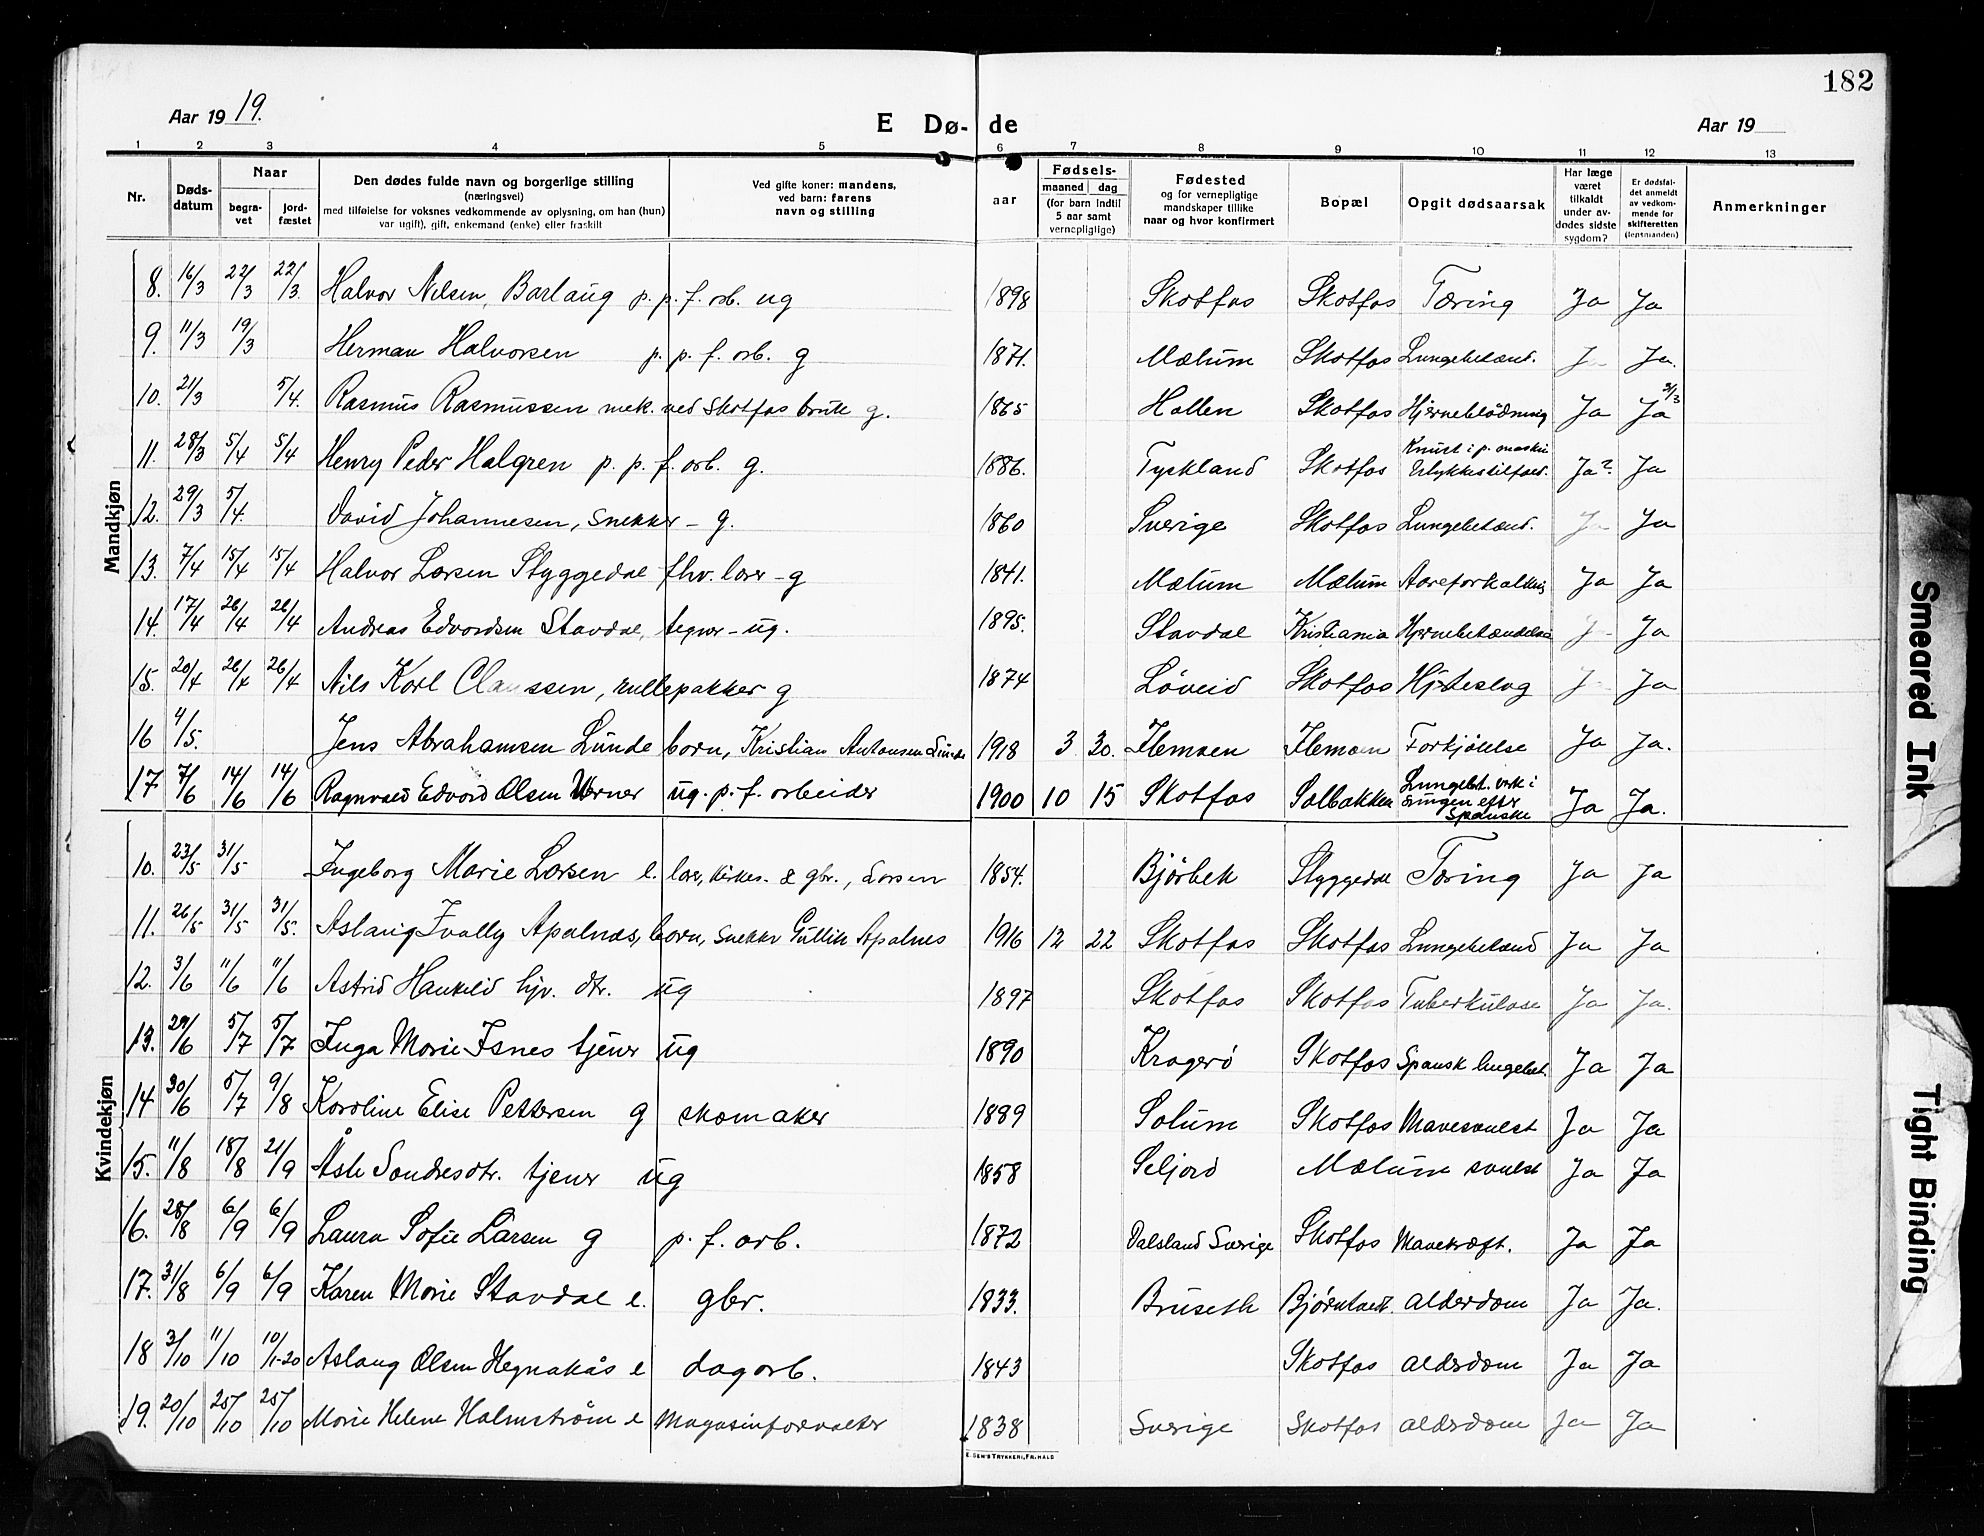 182
Aar 19 19.
E Dø- de
Aar 19
1 2 3 4 5 6 7 8 9 10 11 12 13
Nr.
Døds-
datum
Naar
begra-
vet
jord-
fæstet
Den dødes fulde navn og borgerlige stilling
(næringsvei)
med tilføielse for voksnes vedkommende av oplysning, om han (hun)
var ugift), gift, enkemand (enke) eller fraskilt
Ved gifte koner: mandens,
ved barn: farens
navn og stilling
aar
Fødsels-
maaned dag
(for barn indtil
5 aar samt
vernepligtige)
Fødested
og for vernepligtige
mandskaper tillike
naar og hvor konfirmert
Bopæl
Opgit dødsaarsak
Har læge
været
tilkaldt
under av-
dødes sidste
sygdom?
Er dødsfal-
det anmeldt
av vedkom-
mende for
skifteretten
(lensmanden)
Anmerkninger
Mandkjøn
8. 16/3 22/3 22/3. Halvor Nilsen, Barlaug p. p. f. arb. ug 1898 Skotfos Skotfos Tæring Ja Ja
9. 11/3 19/3 Herman Halvorsen p. p. f. arb. g 1871. Mælum Skotfos Lungebetænd. J Ja.
10. 21/3 5/4. Rasmus Rasmussen mek. ved Skotfos bruk g. 1865 Hollen Skotfos Hjerneblødning Ja Ja 3/1 3
11. 28/3 5/4 5/4 Henry Peder Halgren p. p. f. arb. g. 1886. Tyskland Skotfos Knust i p. maskin Ulykkestilfæld. Ja? Ja
12. 29/3 5/4. David Johannesen, snekker - g. 1860 Sverige Skotfos Lungebetænd. Ja
13. 7/4 15/4 15/4 Halvor Larsen Styggedal fhv. lærer - g 1841. Mælum Mælum Aareforkalkning Ja Ja
14. 17/4 26/4 26/4 Andreas Edvardsen Stavdal, tegner - ug. 1895. Stavdal Kristiania Hjernebetændelse J Ja
15. 20/4 26/4 26/4 Nils Karl Clanssen, rullepakker g 1874 Løveid Skotfos Hjerteslag J Ja
16 4/5. Jens Abrahamsen Lunde barn, Kristian Antonsen Lunde 1918 3 30. Klemoen Klemoen Forkjølelse Ja Ja.
17 7/6 14/6 14/6 Ragnvald Edvard Olsen Werner ug. p. f. arbeider 1900 10 15 Skotfos Solbakken Lungebet. verk i lungen efter Spanske Ja Ja.
Kvindekjøn
10. 23/5 31/5 Ingeborg Marie Larsen e. lærer, kirkes. & gbr., Larsen 1854. Bjørbek Styggedal Tæring Ja Ja
11. 26/5 31/5 31/5. Aslaug Ivally Apalnæs, barn, snekker Gullik Apalnes 1916 12 22 Skotfos Skotfos Lungebetænd Ja Ja
12. 3/6 11/6 11/6 Astrid Haukelid hjv. dtr. ug 1897 Skotfos Skotfos Tuberkulose Ja Ja.
13. 29/6 5/7 5/7 Inga Marie Isnes tjener ug 1890 Kragerö Skotfos Spansk lungebet. Ja Ja
14 30/6 5/7 9/8 Karoline Elise Pettersen g skomaker 1889 Solum Skotfos Mavesvulst Ja Ja
15. 11/8 18/8 21/9 Åsle Sondresdtr. tjener ug 1858 Seljord Mælum svulst Ja Ja
16. 28/8 6/9 6/9 Laura Sofie Larsen g p. f. arb. 1872 Dalsland Sverige Skotfos Mavekræft. Ja Ja
17. 31/8 6/9 6/9 Karen Marie Stavdal e. gbr. 1833. Bruseth Bjørntvedt. Alderdom Ja Ja.
18 3/10 11/10 10/1-20 Aslaug Olsen Hegnakås e dagarb. 1843 Skotfos Alderdom Ja Ja
19. 20/10 25/10 25/10 Marie Helene Halmstrøm e Magasinforvalter 1838 Sverige Skotfos Alderdom Ja Ja
E. SEM'S TRYKKERI, FR.HALD
Smeared Ink
Tight Binding